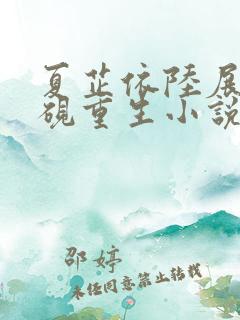 夏芷依陸展
硯重生小說
邵婷
未经同意禁止转载